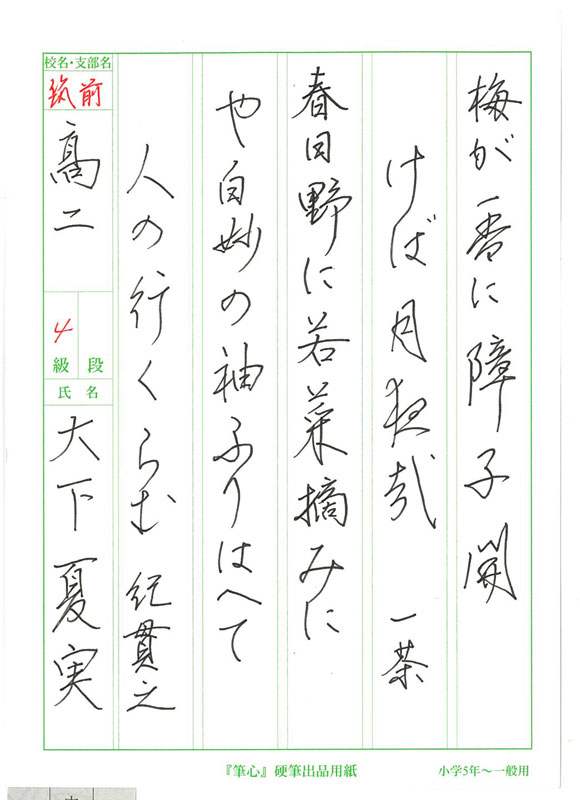 梅が香に障子開
けば月夜哉 一茶
春日野に若菜摘みに
や白妙の袖ふりはへて
人の行くらむ 紀貫之
校名・支部名
筑前
高二
4
級 段
氏名
大下 夏実
『筆心』硬筆出品用紙
小学5年～一般用